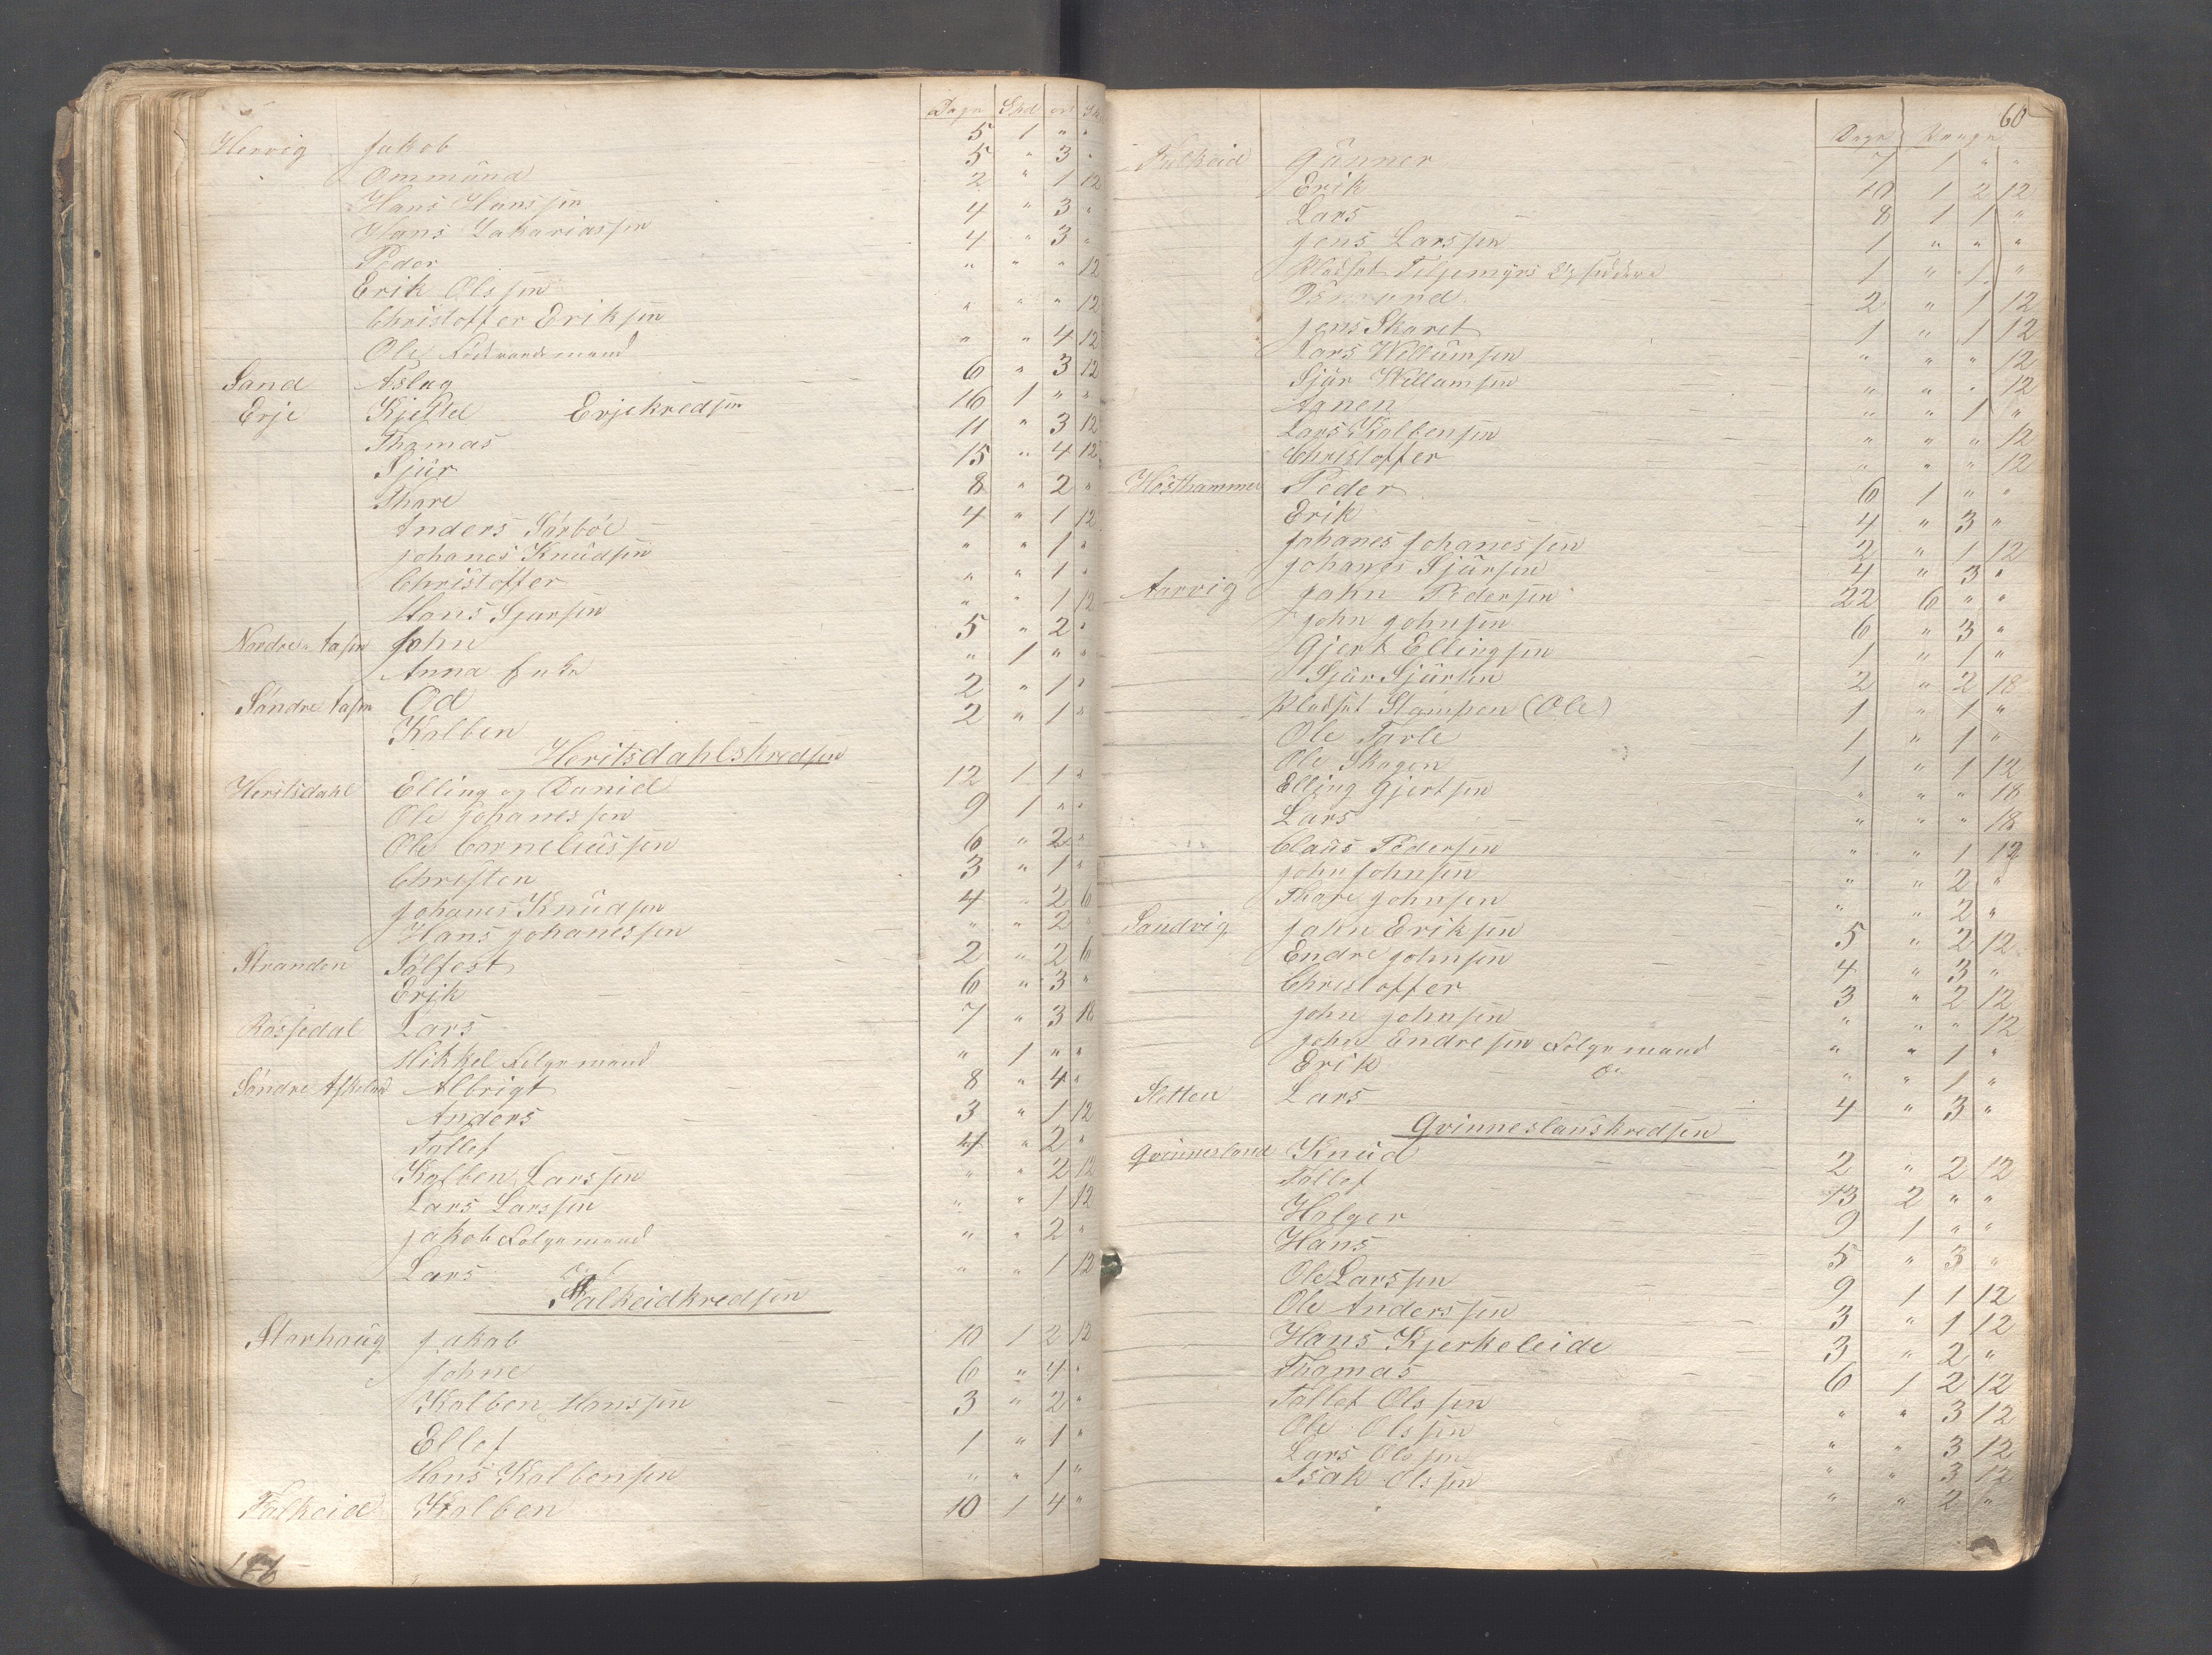 Dage Spd ort Sk
Hervig Jakob 5 1 " "
Ommund 5 " 3 "
Hans Hanssen 2 " 1 12
Hans Zakariassen 4 " 3 "
Peder 4 " 3 "
Erik Olssen " " " 12
Christoffer Eriksen " " " 12
Ole " " 4 12
Sand Aslag 6 " 3 12
Erje Kjettel Erjekredsen 16 1 " "
Thomas 11 " 3 12
Sjür 15 " 4 12
Thore 8 " 2 "
Anders Sørbøe 4 " 1 12
Johanes Knüdsen " " 1 "
Christoffer " " 1 "
Hans Sjursen " " 1 12
Nordre John 5 " 2 "
Anna Enke " 1 " "
Søndre Od 2 " 1 "
Kolben 2 " 1 "
Heritsdahlskredsen
Heritsdahl Elling og Daniel 12 1 1 "
Ole Johanessen 9 1 " "
Ole Corneliüssen 6 " 2 "
Christen 3 " 1 "
Johanes Knüdsen 4 " 2 6
Hans Johanessen " " 2 "
Stranden Sølfest 2 " 2 6
Erik 6 " 3 "
Røssedal Lars 7 " 3 18
Mikkel Folgemand " 1 " "
Søndre Albrigt 8 " 4 "
Anders 3 " 1 12
Tollef 4 " 2 "
Kolben Larssen " " 2 12
Lars Larssen " " 1 12
Jakob Folgemand " " 2 "
Lars " " 1 12
Falkeidkredsen
Storhaüg Jakob 10 1 2 12
Johne 6 " 4 "
Kolben Hanssen 3 " 2 "
Ellef 1 " 1 "
Hans Kolbensen " " 1 "
Falkeid Kolben 10 1 4 "
60
Dage Penge
Falkeid Günner 7 1 " "
Erik 10 1 2 12
Lars 8 1 1 "
Jens Larssen 1 " " "
Pladset 1 " 1 "
Osmund 2 " 1 12
Jens Skaret 1 " 1 12
Lars Willümsen " " " 12
Sjür Willumsen " " " 12
Agnen " " 1 "
Lars Kolbensen " " " 12
Christoffer " " " 12
Høsthammer Peder 6 1 " "
Erik 4 " 3 "
Johanes Johanessen 2 " 1 12
Johanes Sjürsen 4 " 3 "
Aarvig John Pedersen 22 6 " "
John Johnsen 6 " 3 "
Gjert Ellingsen 1 " 1 "
Sjür Sjürsen 2 " 2 18
Pladset Stampen (Ole) 1 " 1 "
Ole Tarle 1 " 1 "
Ole Skogen 1 " 1 12
Elling Gjertsen " " " 18
Lars " " " 18
Claüs Pedersen " " 1 12
John Johnsen " " 2 "
Thore Johnsen " " 2 "
Sandvig John Eriksen 5 " 2 12
Endre Johnsen 4 " 3 "
Christoffer 3 " 2 12
John Johnsen " " " 12
John Endresen Folgemand " " 1 "
Erik do " " 1 "
Sletten Lars 4 " 3 "
Gvinneslanskredsen
Gvinnesland Knüd 2 " 2 12
Tollef 13 2 " "
Holger 9 1 " "
Hans 5 " 3 "
Ole Larssen 9 1 1 12
Ole Anderssen 3 " 1 12
Hans Kjerkeleide 3 " 2 "
Thomas 6 1 2 12
Tollef Olssen " " 3 12
Ole Olssen " " 3 12
Lars Olssen " " 3 12
Isak Olssen " " 2 "